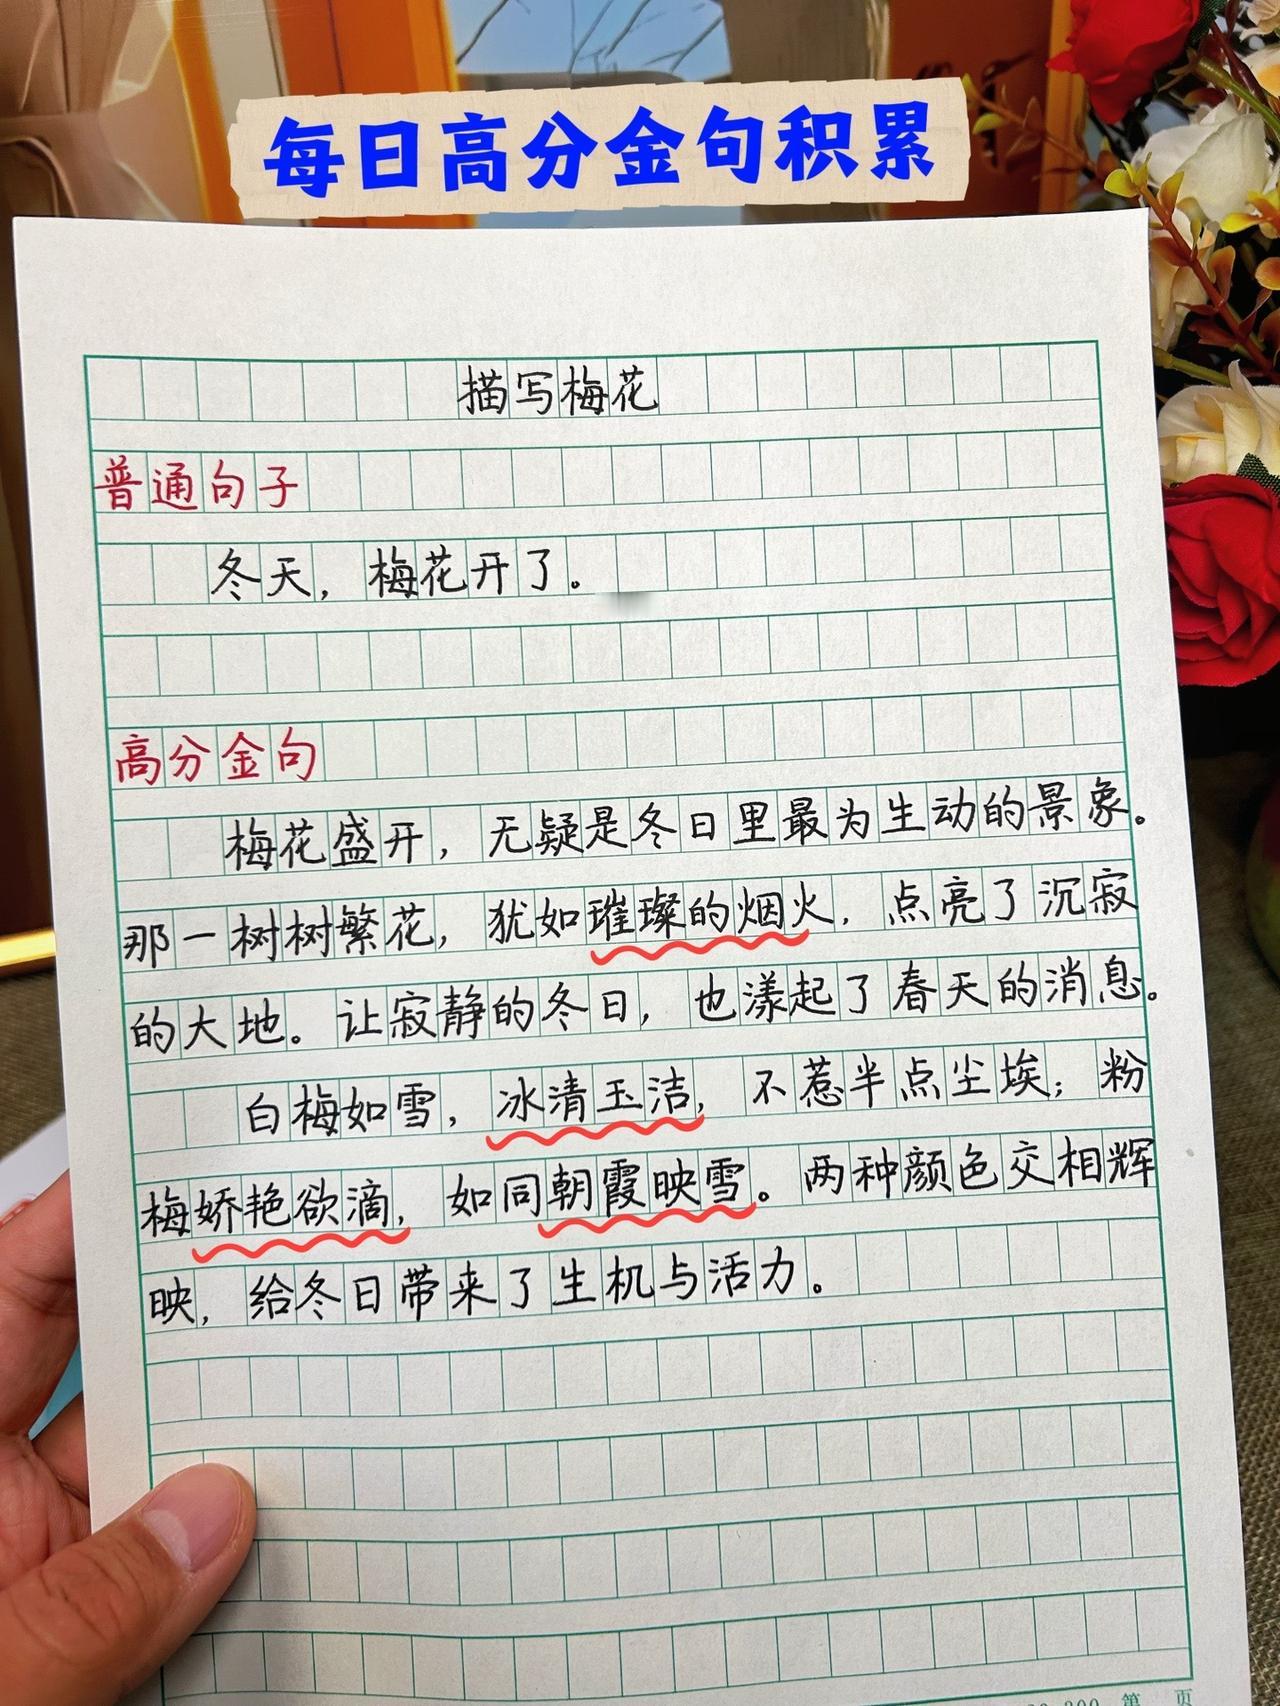 每日高分金句积累
描写梅花
普通句子
冬天，梅花开了。
高分金句
梅花盛开，无疑是冬日里最为生动的景象。
那一树树繁花，犹如璀璨的烟火，点亮了沉寂
的大地。让寂静的冬日，也漾起了春天的消息。
白梅如雪，冰清玉洁，不惹半点尘埃；粉
梅娇艳欲滴，如同朝霞映雪。两种颜色交相辉
映，给冬日带来了生机与活力。
第 页